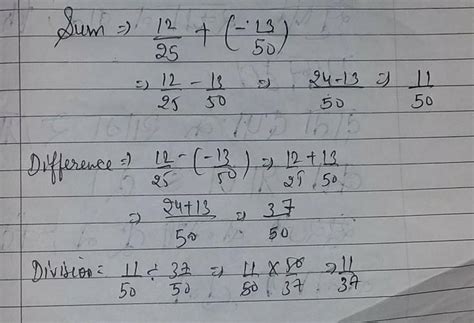 Sum ⇒ 12/25 + (-13/50)
⇒ 12/25 - 13/50 ⇒ 24-13/50 ⇒ 11/50
Difference ⇒ 12/25 - (-13/50) ⇒ 12/25 + 13/50
⇒ 24+13/50 ⇒ 37/50
Division = 11/50 ÷ 37/50 ⇒ 11/50 × 50/37 ⇒ 11/37